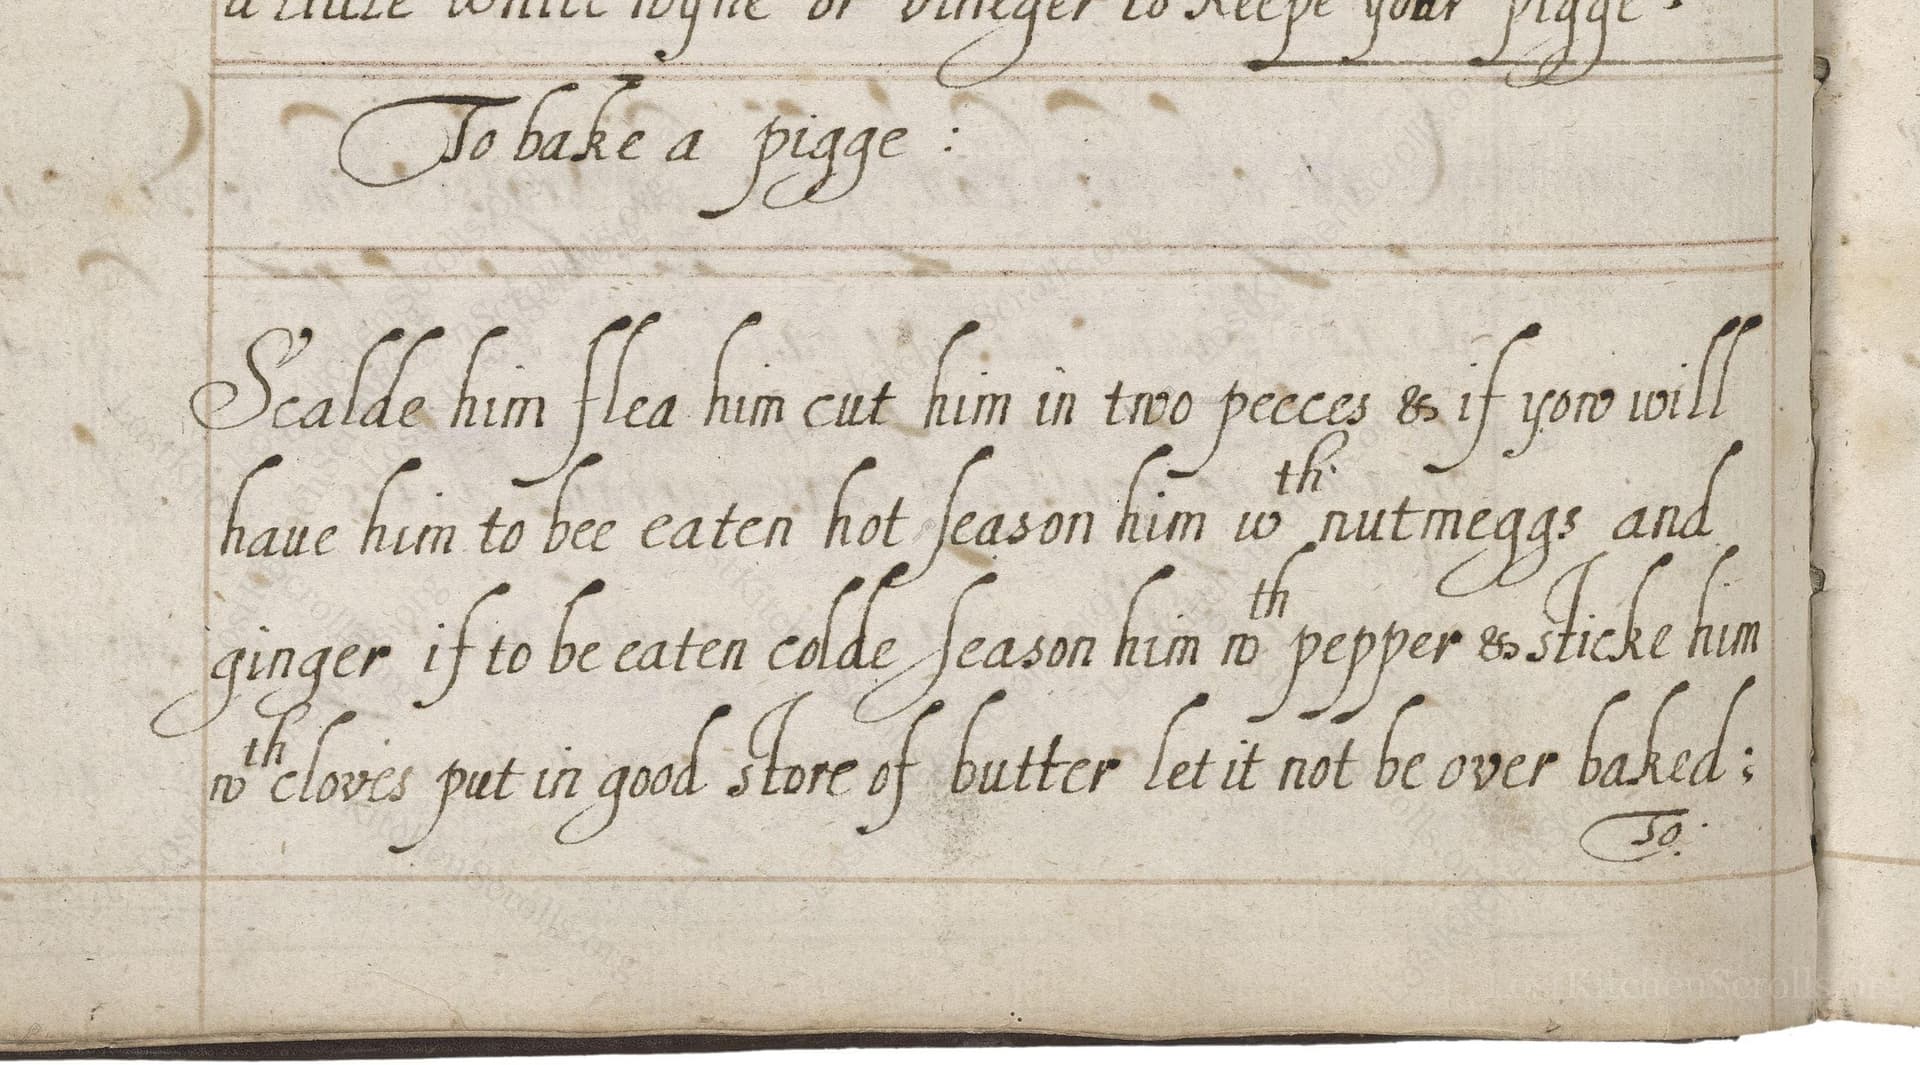 a little white wyne or vineger to keepe your pigge .
To bake a pigge :
Scalde him flea him cut him in two peeces & if yow will
haue him to bee eaten hot season him wth nutmeggs and
ginger if to be eaten colde season him wth pepper & sticke him
wth cloves put in good store of butter let it not be over baked ;
To.
LostKitchenScrolls.org